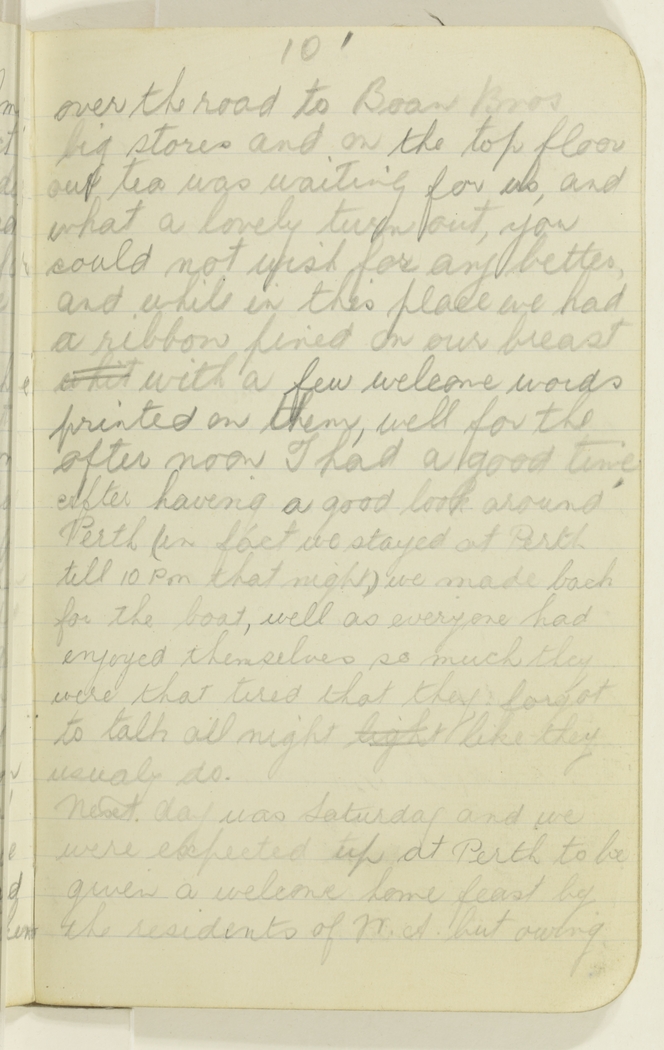 10
over the road to Boan Bros
big stores and on the top floor
our tea was waiting for us, and
what a lovely turn out, you
could not wish for any better,
and while in this place we had
a ribbon pined on our breast
whit with a few welcome words
printed on them, well for the
after noon I had a good time
after having a good look around
Perth (in fact we stayed at Perth
till 10 Pm that night) we made back
for the boat, well as everyone had
enjoyed themselves so much they
were that tired that they forgot
to talk all night light like they
usualy do.
Next day was Saturday and we
were expected up at Perth to be
given a welcome home feast by
the residents of W.A. but owing